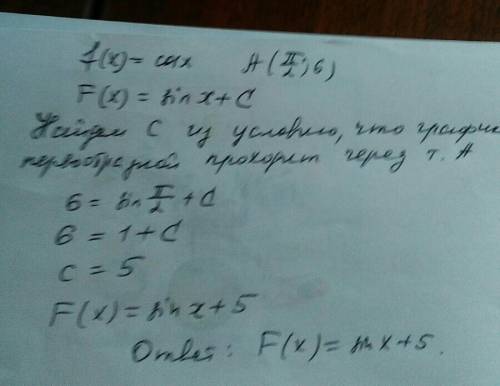 f(x) = cos x A(π/2; 6)
F(x) = sin x + C
Найдем C из условию, что график
первообразной проходит через т. A
6 = sin π/2 + C
6 = 1 + C
c = 5
F(x) = sin x + 5
Ответ: F(x) = sin x + 5.